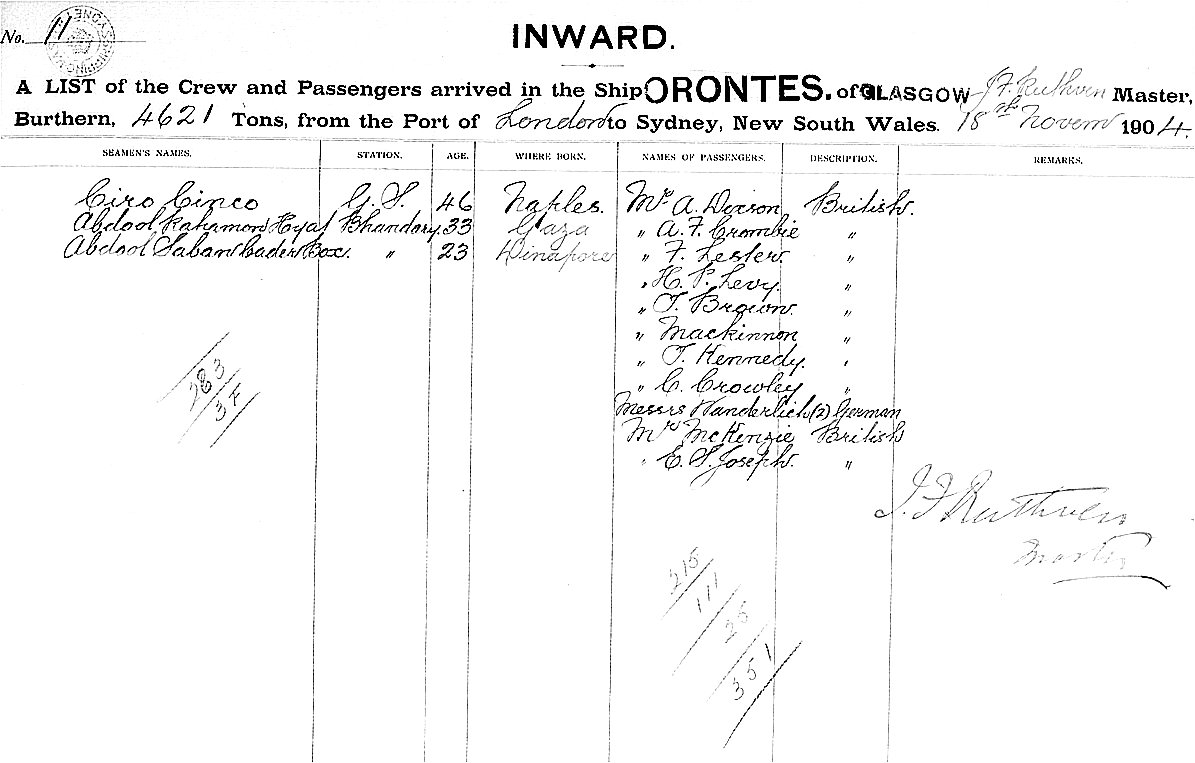 No. 11
INWARD.
A LIST of the Crew and Passengers arrived in the Ship ORONTES. of GLASGOW J. F. Ruthven Master,
Burthern, 4621 Tons, from the Port of London to Sydney, New South Wales. 18th Novem 1904.
SEAMEN'S NAMES. STATION. AGE. WHERE BORN. NAMES OF PASSENGERS. DESCRIPTION. REMARKS.
Ciro Cinco G. S. 46 Naples. Mr. A. Dixson British.
Abdool Rahamon Hyat Bhandary 33 Gaza " A. F. Crombie "
Abdool Saban Cader Box. " 23 Dinapore " F. Lester "
" H. P. Levy. "
" T. Brown. "
" Mackinnon "
" T. Kennedy. "
" C. Crowley "
Messrs Handerlich (2) German
Mr McKenzie British
" E. S. Joseph. "
J. F. Ruthven
Master
283
34
215
111
25
351